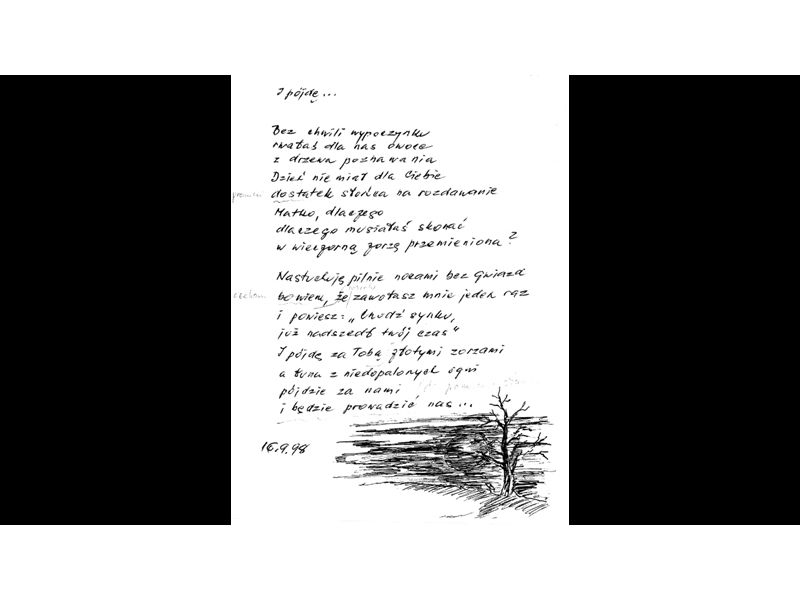 I pójdę...
Bez chwili wypoczynku
rwałaś dla nas owoce
z drzewa poznawania
Dzień nie miał dla Ciebie
dostatek słońca na rozdawanie
Matko, dlaczego
dlaczego musiałaś skonać
w wieczorną zorzę przemieniona?
Nasłuchuję pilnie nocami bez gwiazd
bowiem, że zawołasz mnie jeden raz
i powiesz: „Chodź synku,
już nadszedł twój czas"
I pójdę za Tobą złotymi zorzami
a łuna z niedopalonych ogni
pójdzie za nami
i będzie prowadzić nas...
16.9.98